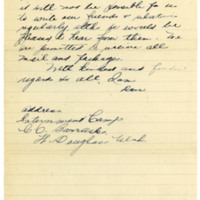 it will not be possible for us
to write our friends & relatives
regularly altho we would be
pleased to hear from them. We
are permitted to receive all
mail and packages.
With kindest and
regards to all, I am
address
Internment Camp
C.C. Barracks
Ft Douglas Utah